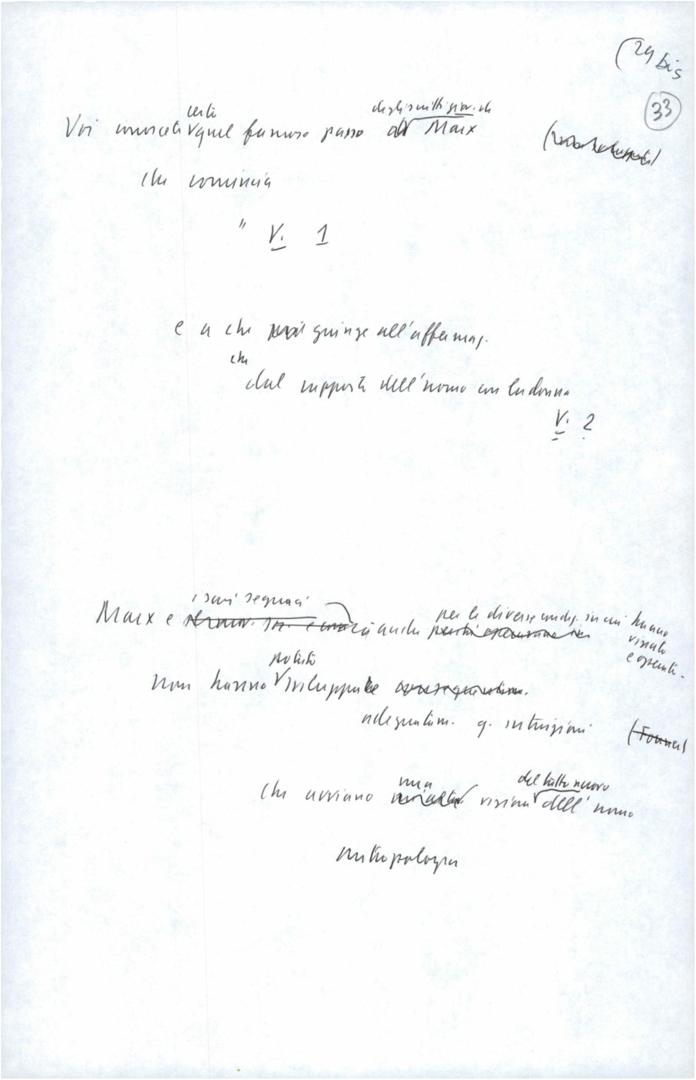 (29 bis
33
certo degli scritti giov. di
Voi conoscete quel famoso passo di Marx
che comincia
" V. 1
e a che giunge all'affermaz.
che
dal rapporto dell'uomo con la donna
V. 2
i suoi seguaci
Marx e anche per le diverse condiz. in cui hanno
vissuto
e operato.
potuto
non hanno sviluppate
adeguatam. q. intuizioni (Fourier)
una del tutto nuova
che avviano visione dell'uomo
antropologia